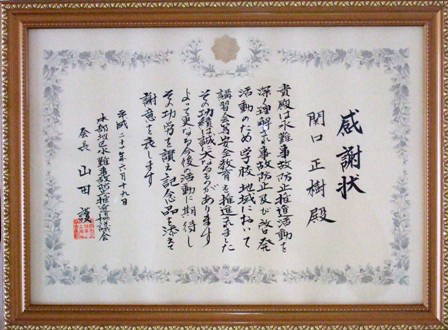 感謝状
関口 正樹 殿
貴殿は水難事故防止推進活動を
深く理解され事故防止及び啓発
活動のため学校地域において
講習会等安全教育を推進されました
その功績は誠に大なるものがあります
よって更なる今後活動に期待し
その功労を讃え記念品を添えて
謝意を表します
平成二十四年六月十九日
本部地区水難事故防止推進協議会
会長 山田 護